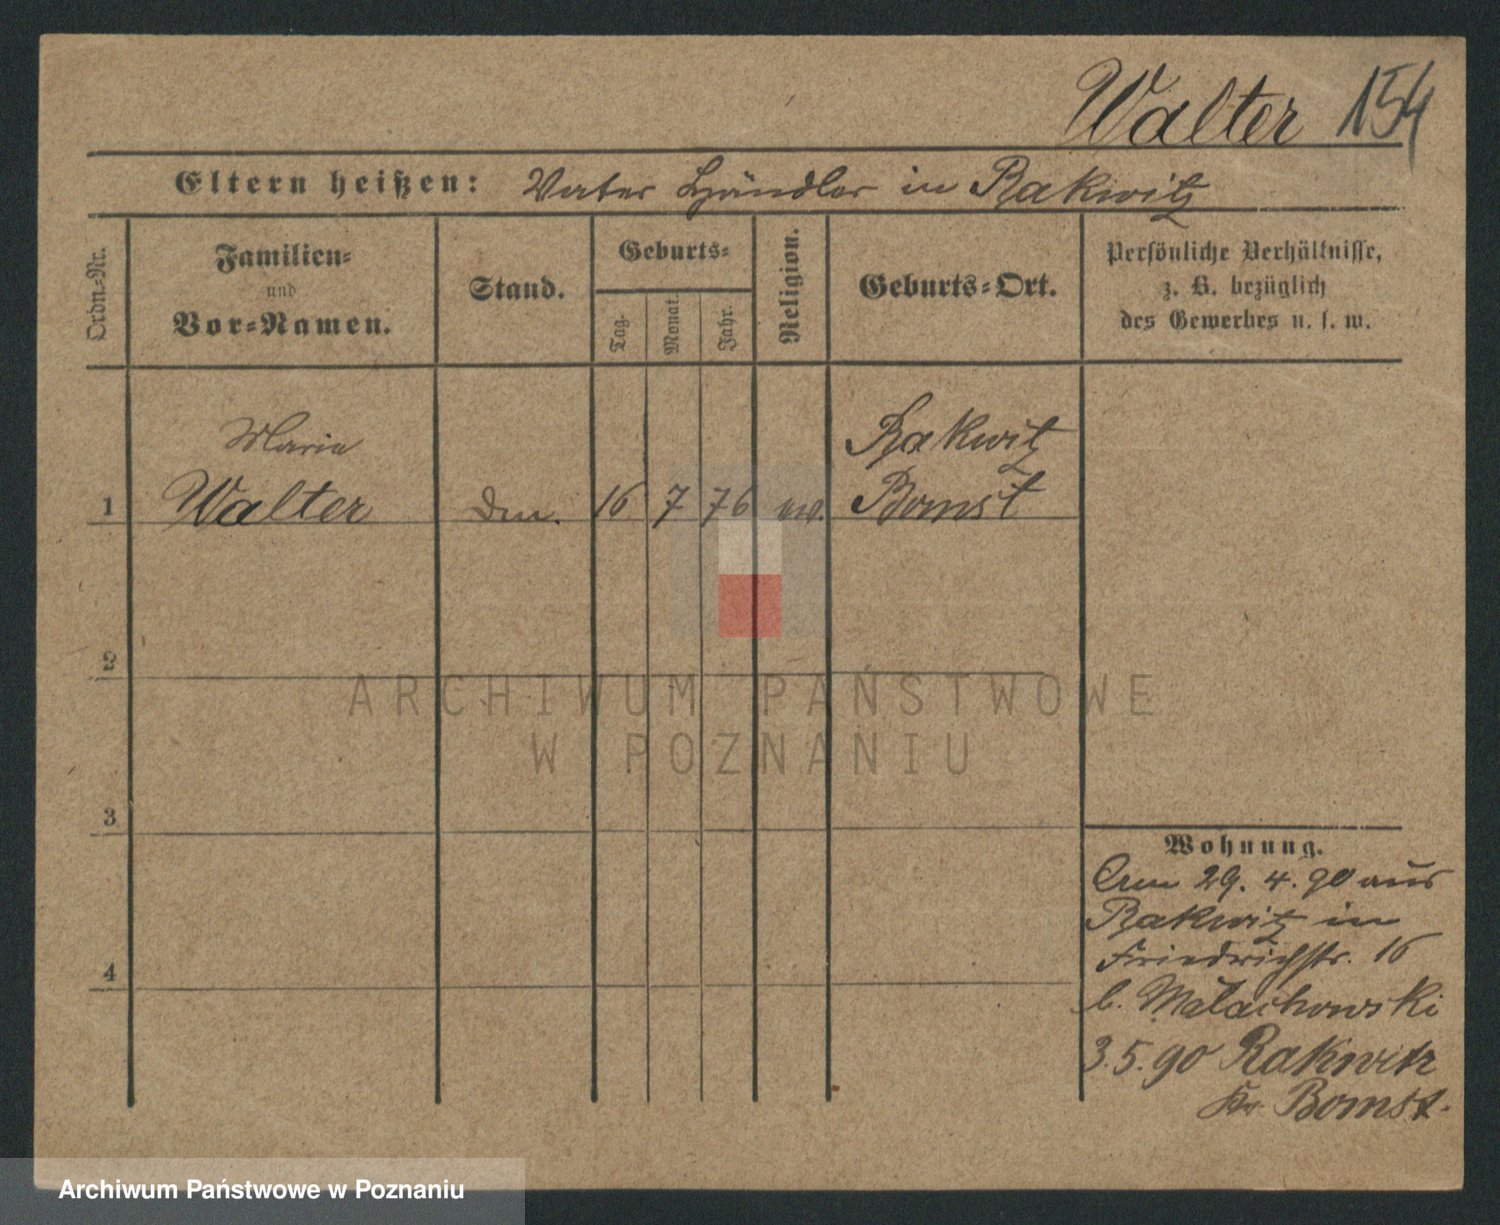 Walter 154
Eltern heißen: Vater Händler in Rakwitz
Ordn.-Nr.
Familien-
und
Vor-Namen.
Stand.
Geburts-
Tag.
Monat.
Jahr.
Religion.
Geburts-Ort.
Persönliche Verhältnisse,
z. B. bezüglich
des Gewerbes u. s. w.
Marie
Walter
1
16 7 76
Rakwitz
Bomst
2
3
4
Wohnung.
Am 29. 4. 90 aus
Rakwitz in
Friedrichstr. 16
b. Malachowski
3.5.90 Rakwitz
Kr. Bomst.
ARCHIWUM PAŃSTWOWE
W POZNANIU
Archiwum Państwowe w Poznaniu